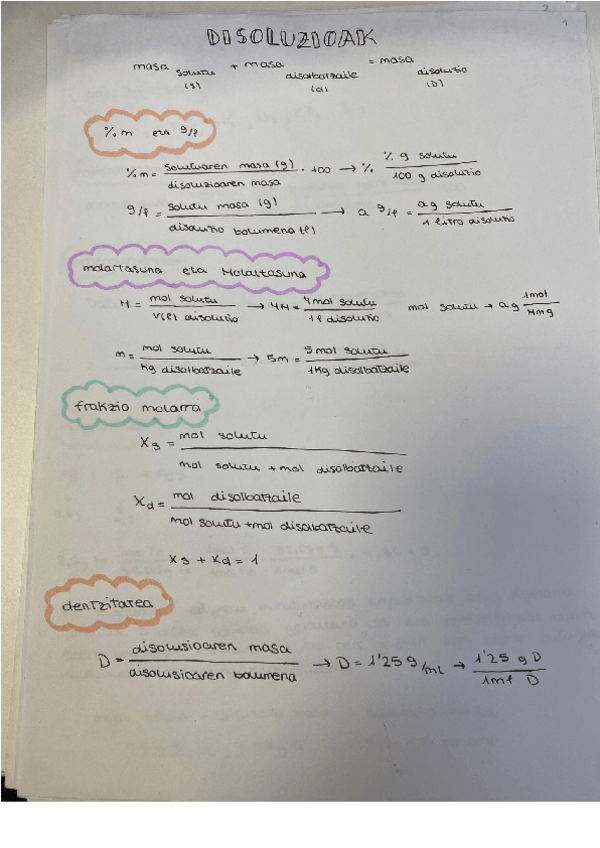 2
1
DISOLUZIOAK
masa solutu (s) + masa disolbatzaile (d) = masa disoluzio (D)
%m eta g/l
%m = solutuaren masa (g) / disoluzioaren masa · 100 → % % g solutu / 100 g disoluzio
g/l = solutu masa (g) / disoluzio bolumena (l) → a g/l = a g solutu / 1 litro disoluzio
molartasuna eta Molaltasuna
M = mol solutu / V(l) disoluzio → 4M = 4 mol solutu / 1 l disoluzio mol solutu → a g 1mol / Mm g
m = mol solutu / Kg disolbatzaile → 5m = 5 mol solutu / 1Kg disolbatzaile
frakzio molarra
Xs = mol solutu / mol solutu + mol disolbatzaile
Xd = mol disolbatzaile / mol solutu + mol disolbatzaile
Xs + Xd = 1
dentzitatea
D = disolusioaren masa / disolusioaren bolumena → D = 1'25 g/mL → 1'25 g D / 1ml D